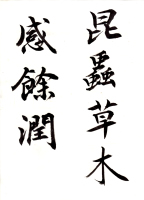 昆蟲草木
感餘潤